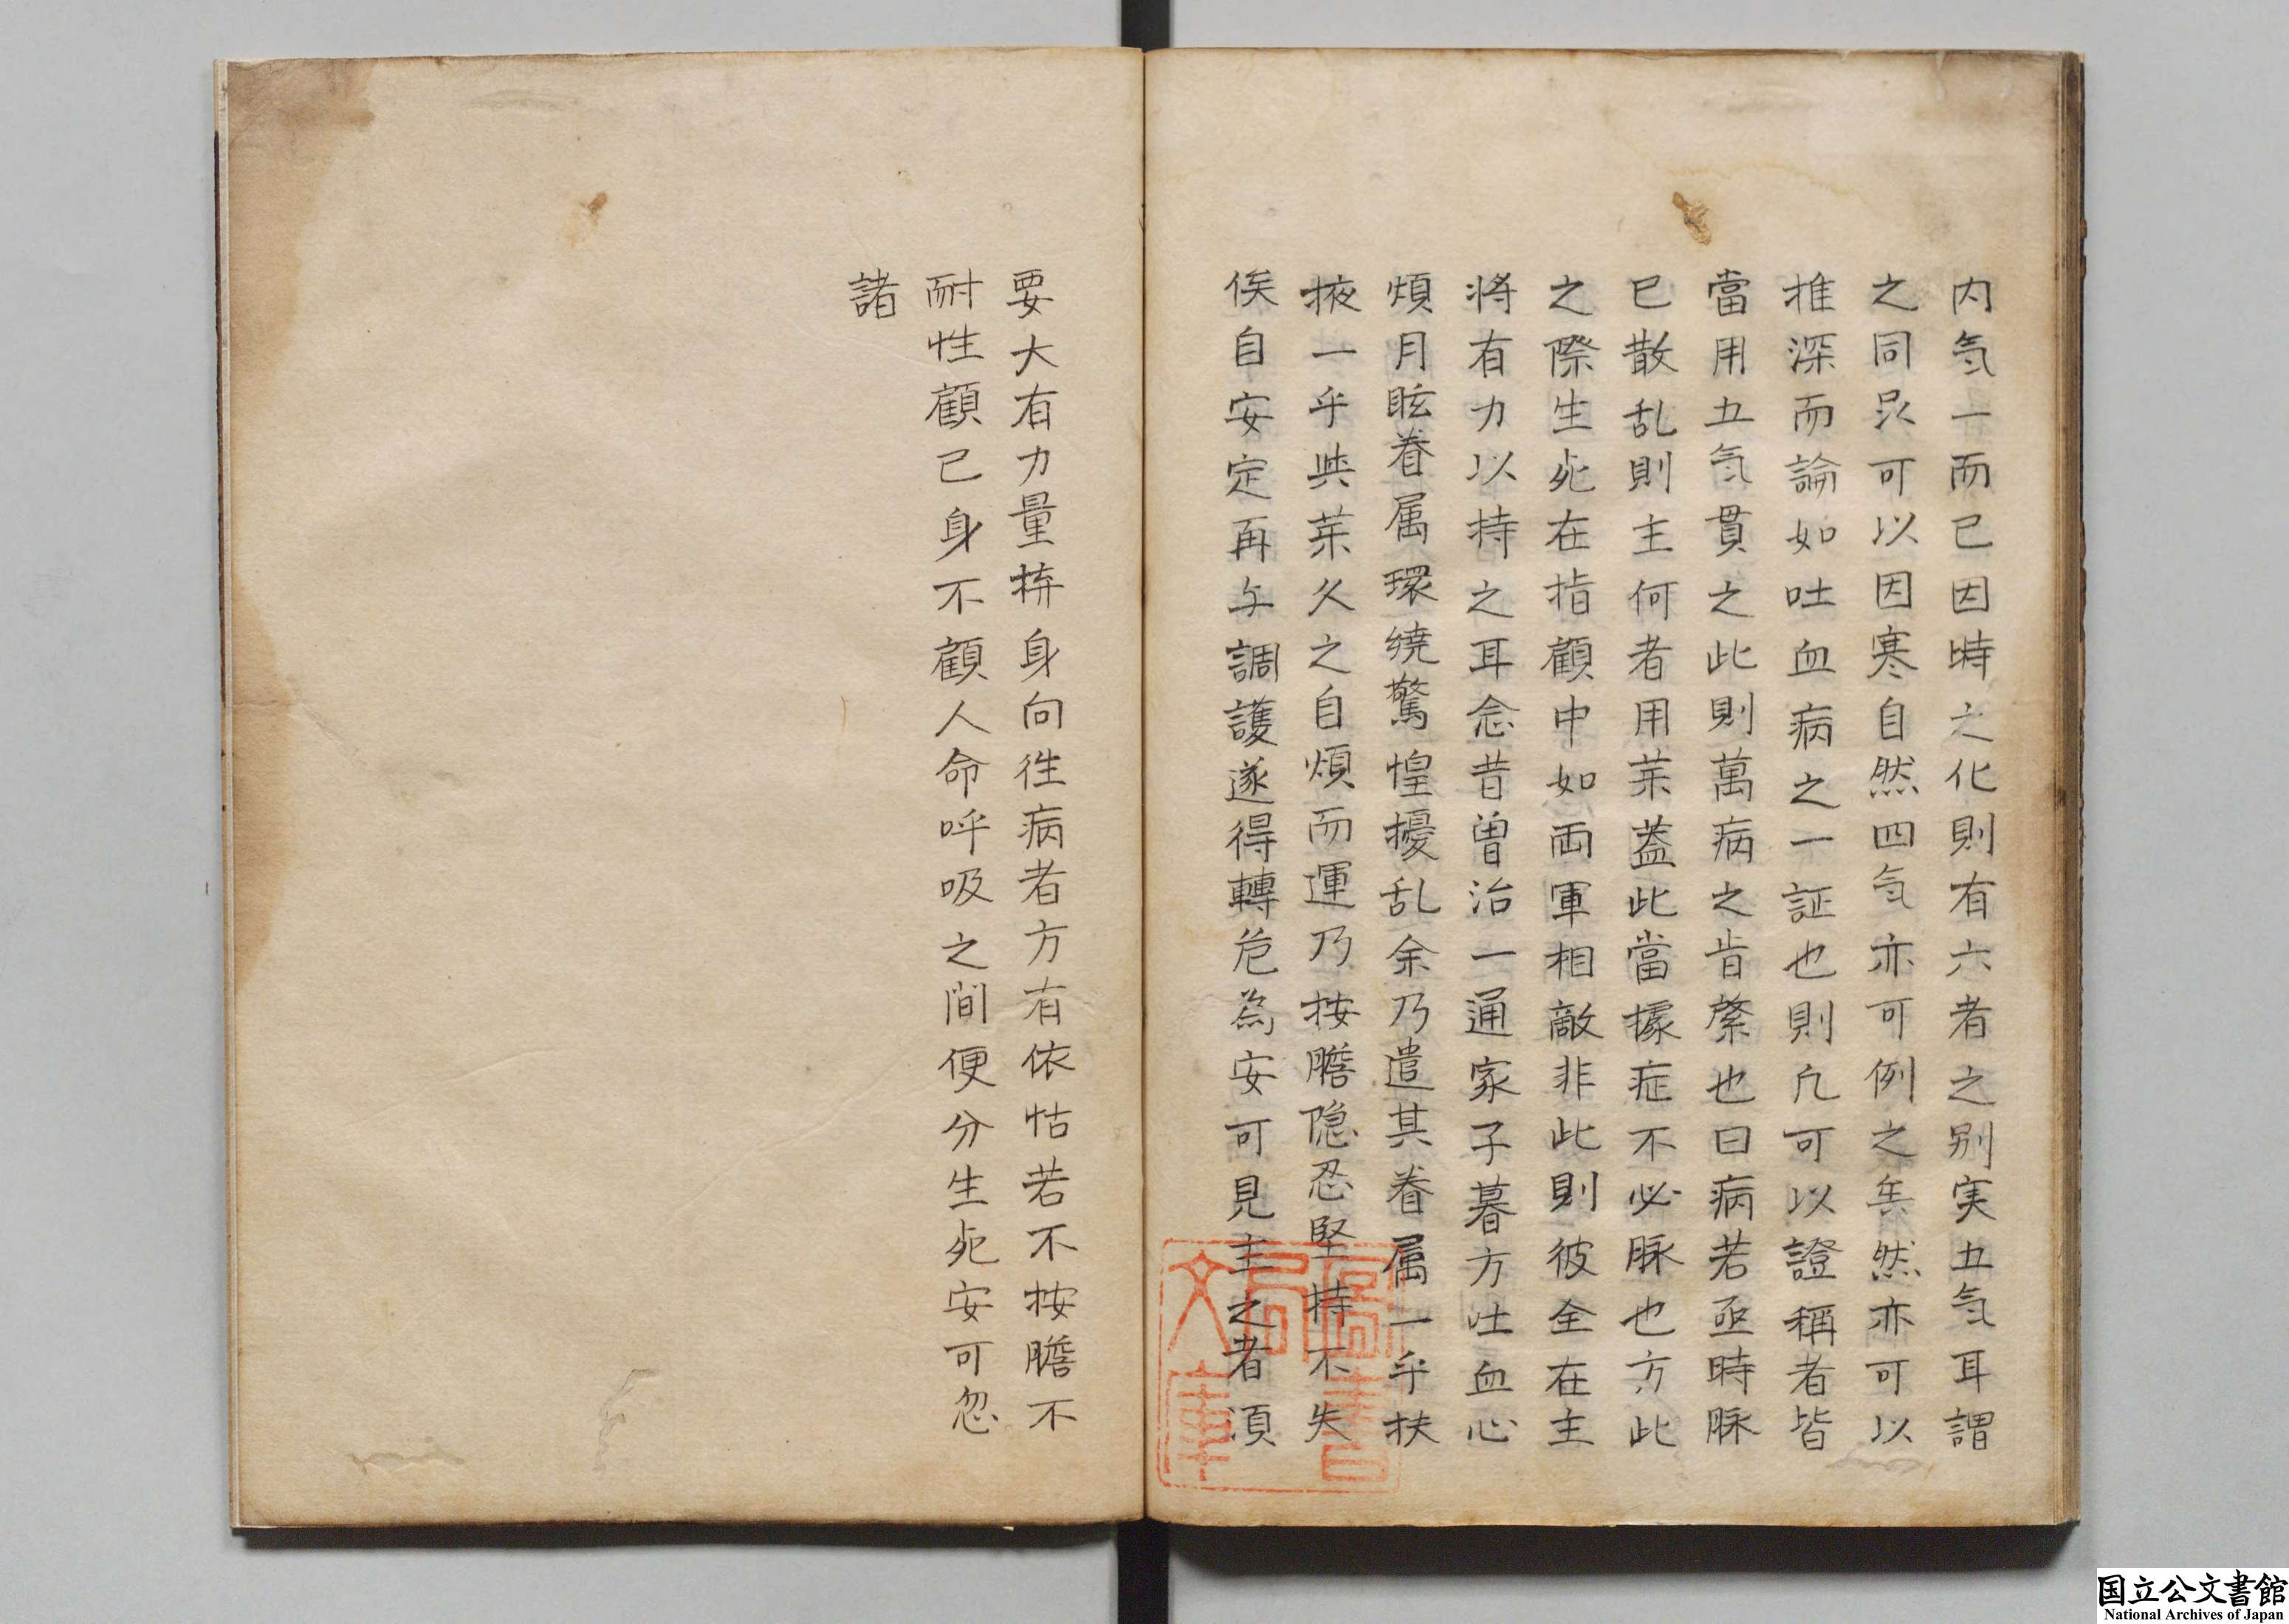 内気一而已因時之化則有六者之别実五気耳謂
之同炁可以因寒自然四気亦可例之矣然亦可以
推深而論如吐血病之一証也則凢可以證稱者皆
當用五氣貫之此則萬病之肯綮也曰病若亟時脉
已散乱則主何者用薬蓋此當據症不必脉也方此
之際生死在指顧中如両軍相敵非此則彼全在主
将有力以持之耳念昔曽治一通家子暮方吐血心
煩月眩眷属環繞驚惶擾乱余乃遣其眷属一乎扶
掖一乎與薬久之自煩而運乃按膽隠忍堅持不失
俟自安定再与調護遂得轉危為安可見主之者湏
要大有力量拚身向徃病者方有依怙若不按膽不
耐性顧已身不顧人命呼吸之間便分生死安可忽
諸
文庫
国立公文書館
National Archives of Japan